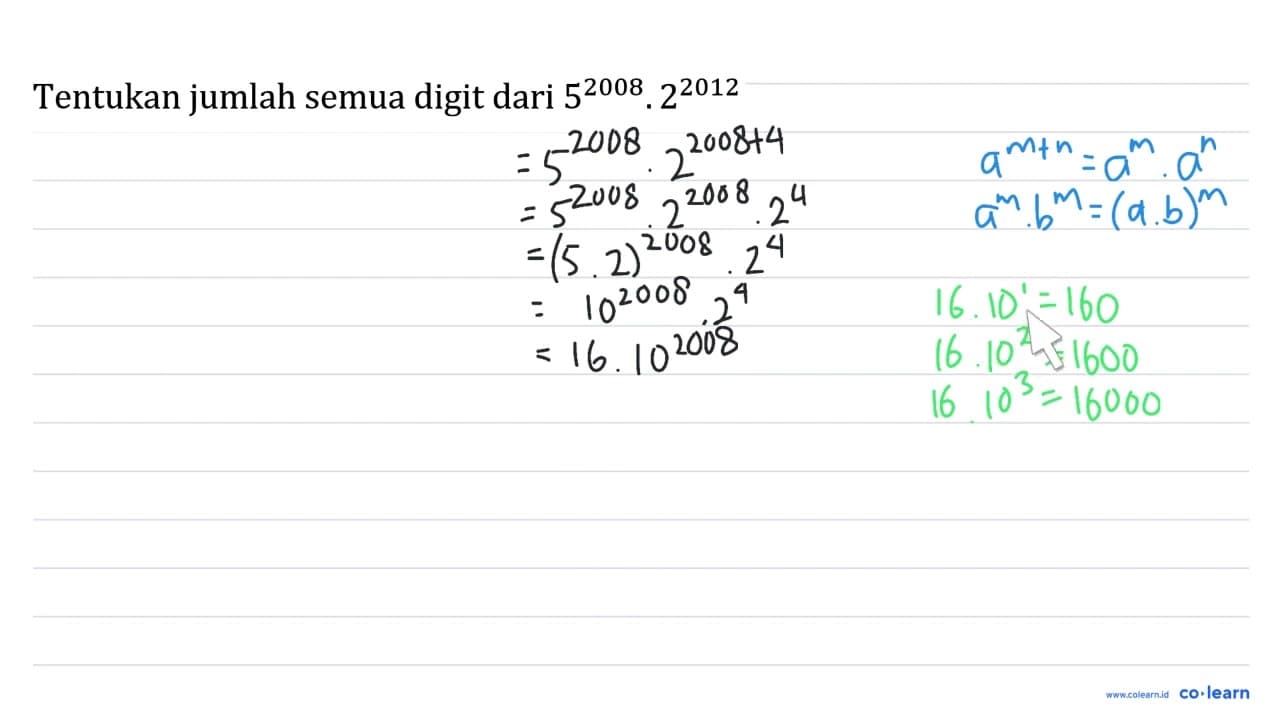 Tentukan jumlah semua digit dari 5^2008 . 2^2012
= 5^2008 . 2^2008+4
= 5^2008 . 2^2008 . 2^4
= (5 . 2)^2008 . 2^4
= 10^2008 . 2^4
= 16 . 10^2008
a^m+n = a^m . a^n
a^m . b^m = (a . b)^m
16 . 10^1 = 160
16 . 10^2 = 1600
16 . 10^3 = 16000
www.colearn.id co·learn